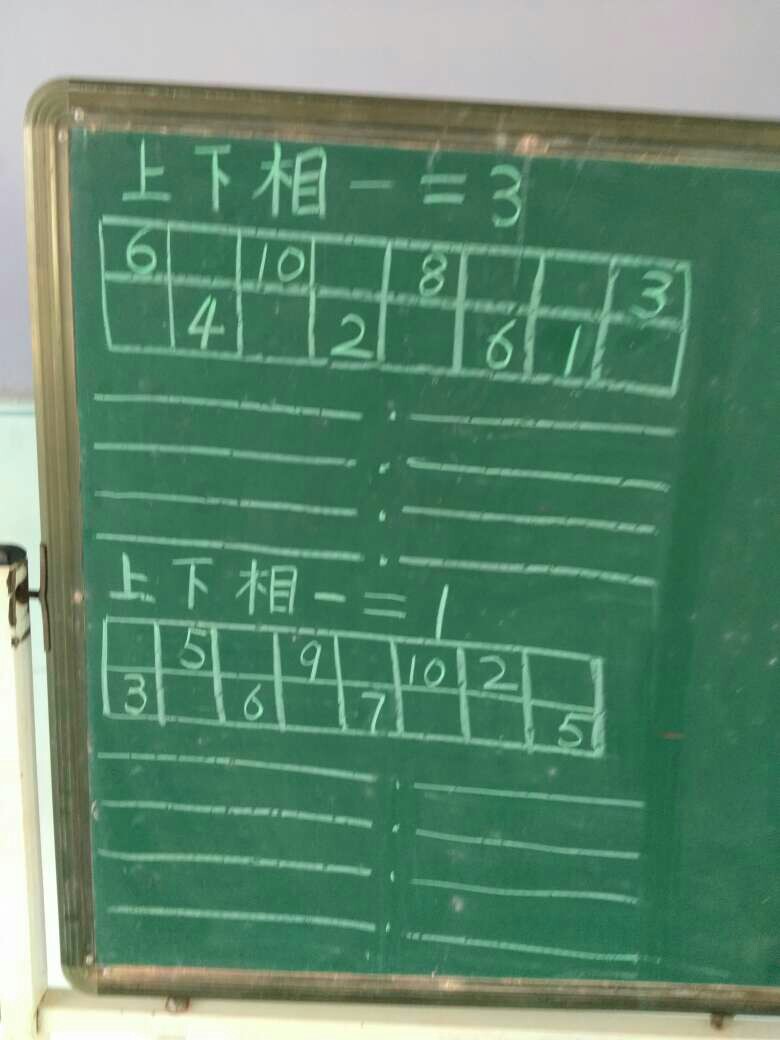 上下相一=3
6 10 8 3
4 2 6 1
上下相一=1
5 9 10 2
3 6 7 5